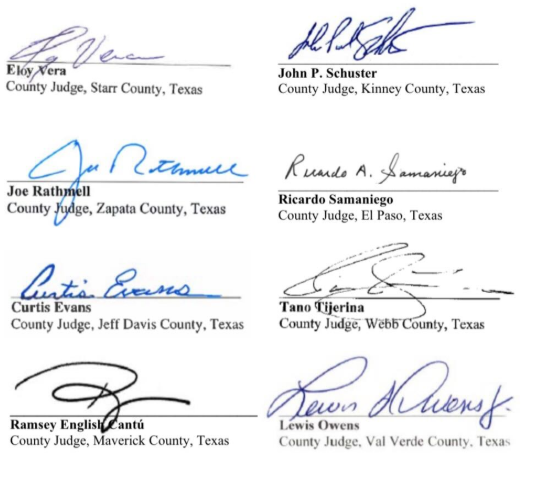 Eloy Vera
County Judge, Starr County, Texas
John P. Schuster
County Judge, Kinney County, Texas
Joe Rathmell
Joe Rathmell
County Judge, Zapata County, Texas
Ricardo A. Samaniego
Ricardo Samaniego
County Judge, El Paso, Texas
Curtis Evans
Curtis Evans
County Judge, Jeff Davis County, Texas
Tano Tijerina
County Judge, Webb County, Texas
Ramsey English Cantú
County Judge, Maverick County, Texas
Lewis Owens
County Judge, Val Verde County, Texas